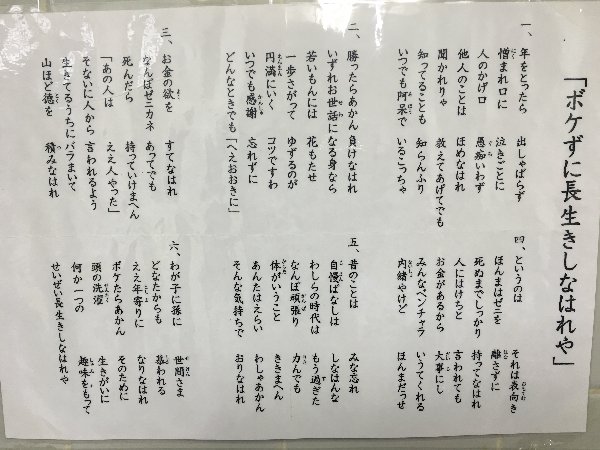 「ボケずに長生きしなはれや」
一、年をとったら 出しゃばらず
憎まれ口に 泣きごとに
人のかげ口 愚痴いわず
他人のことは ほめなはれ
聞かれりゃ 教えてあげてでも
知ってることも 知らんふり
いつでも阿呆で いるこっちゃ
二、勝ったらあかん 負けなはれ
いずれお世話に なる身なら
若いもんには 花もたせ
一歩さがって ゆずるのが
円満にいく コツですわ
いつでも感謝 忘れずに
どんなときでも 「へえおおきに」
三、お金の欲を すてなはれ
なんぼゼニカネ あってでも
死んだら 持っていけまへん
「あの人は ええ人やった」
そないに人から 言われるよう
生きてるうちに バラまいて
山ほど徳を 積みなはれ
四、というのは それは表向き
ほんまはゼニを 離さずに
死ぬまでしっかり 持ってなはれ
人にはけちと 言われても
お金があるから 大事にし
みんなベンチャラ いうてくれる
内緒やけど ほんまだっせ
五、昔のことは みな忘れ
自慢ばなしは しなはんな
わしらの時代は もう過ぎた
なんぼ頑張り 力んでも
体がいうこと ききまへん
あんたはえらい わしゃあかん
そんな気持ちで おりなはれ
六、わが子に孫に 世間さま
どなたからも 慕われる
ええ年寄りに なりなはれ
ボケたらあかん そのために
頭の洗濯 生きがいに
何か一つの 趣味をもって
せいぜい長生きしなはれや